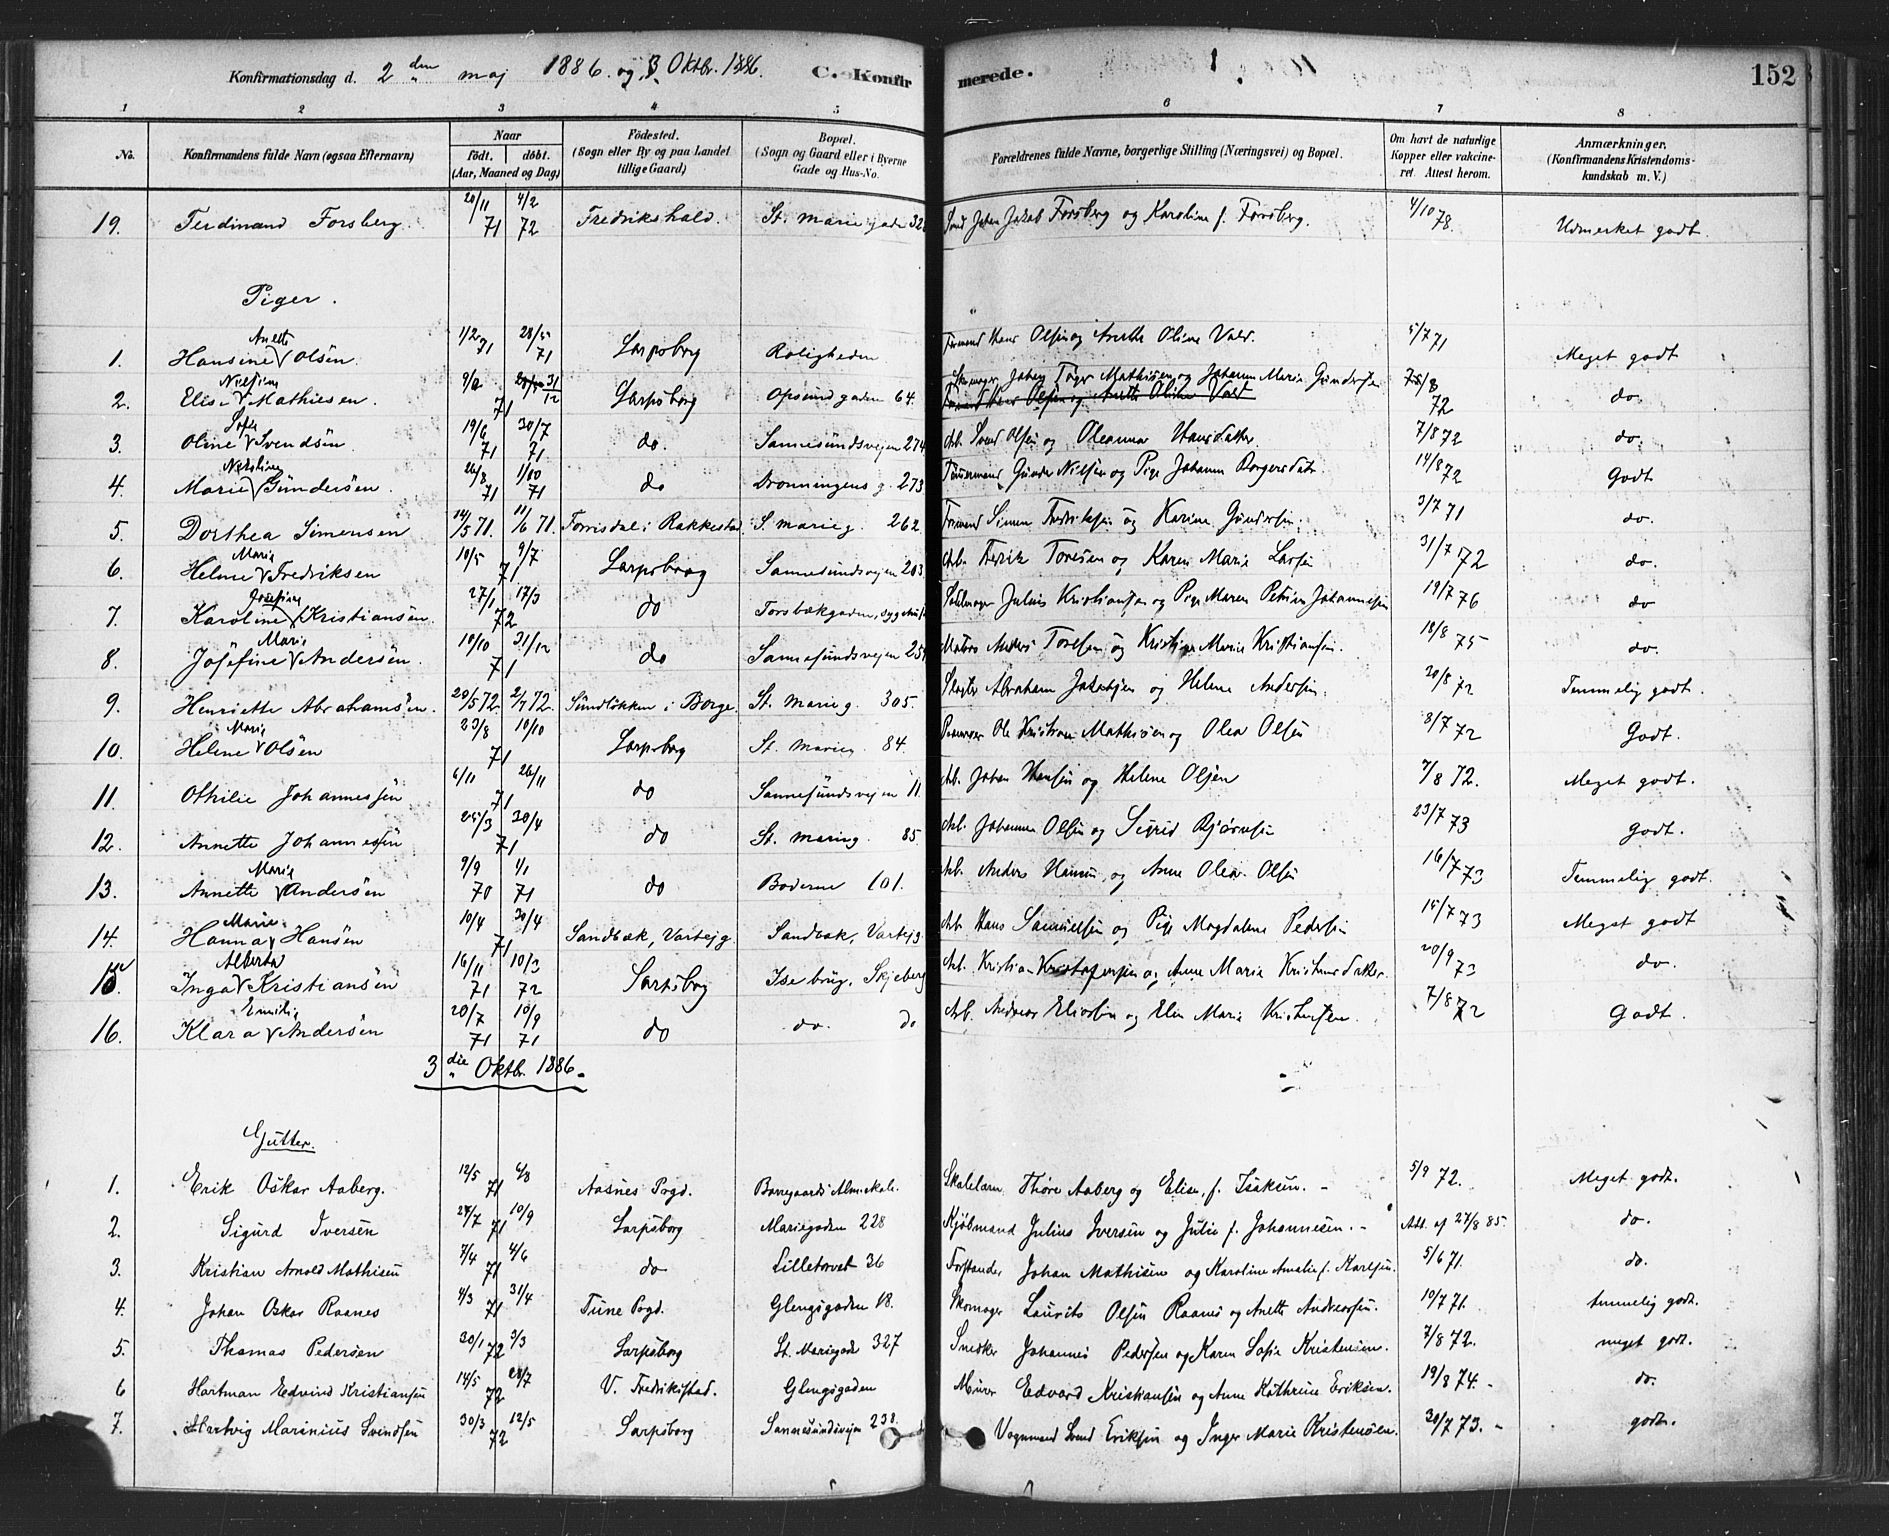 Konfirmationsdag d. 2den maj 1886. og 3 Oktbr. 1886. C. Konfirmerede. 152
1 2 3 4 5 6 7 8
No. Konfirmandens fulde Navn (ogsaa Efternavn) Naar Født. døbt. (Aar, Maaned og Dag) Fødested. (Sogn eller By og paa Landet tillige Gaard) Bopæl. (Sogn og Gaard eller i Byerne Gade og Hus-No. Forældrenes fulde Navne, borgerlige Stilling (Næringsvei) og Bopæl. Om havt de naturlige Kopper eller vakcineret. Attest herom. Anmærkninger. (Konfirmandens Kristendomskundskab m. V.)
19. Ferdinand Forsberg. 20/11 71 4/2 72 Fredrikshald. St. Marie gade 32 Johan Jakob Forsberg og Karoline f. Forsberg. 4/10 78. Udmerket godt.
Piger.
1. Hansine Anette Olsen. 1/2 71 28/5 71 Sarpsborg Roligheden Formand Hans Olsen og Anette Oline Vald. 5/7 71 Meget godt
2. Elise Nilsine Mathiesen. 71 Sarpsborg Opsund gaden 64. Skomager Johan Mathisen og Johanne Marie Gundersen 72 do.
Formand Hans Olsen og Anette Oline Vald
3. Oline Sofie Svendsen 19/6 71 30/7 71. do. Sannesundsvejen 274 Arb. Svend Olsen og Oleanna Hansdatter 7/8 72 do.
4. Marie Gundersen. 26/8 71 1/10 71 do Dronningens g. 273 Tømmermand Gunder Nilsen og Pige Johanne Borgersdatr. 14/8 72 Godt
5. Dorthea Simensen 14/5 71. 11/6 71. i Rakkestad S. marieg. 262 Formand Simen Fredriksen og Karine Gundersen. 3/7 71 do.
6. Helene Marie Fredriksen 10/5 9/7 71 Sarpsborg Sannesundsvejen 203 Arb. Fredrik Toresen og Karen Marie Larsen 31/7 72 do.
7. Karoline Josefine Kristiansen. 27/1 17/3 72 do Torsbækgaden, Julius Kristiansen og Pige Maren Petrine Johannesen 19/7 76 do
8. Josefine Marie Andersen. 10/10 31/12 71 do Sannesundsvejen Anders Toresen og Kristine Marie Kristiansen. 18/8 75 do.
9. Henriette Abrahamsen. 20/5 72. 2/7 72. Sundløkken i Borge. St. Marie g. 305. Slagter Abraham Jakobsen og Helene Andersen. 20/8 72 Temmelig godt.
10. Helene Marie Olsen 23/8 10/10 71 Sarpsborg St. Marieg. 84. Ole Kristian Mathisen og Olea Olsen 8/7 72 Godt.
11. Othilie Johannessen 6/11 26/11 71 do Sannesundsvejen 11. Arb. Johan Hansen og Helene Olsen 7/8 72. Meget godt.
12. Annette Johannessen 25/3 30/4 71 do St. Marieg. 85 Arb. Johannes Olsen og Sigrid Bjørnsen 23/7 73 godt.
13. Annette Marie Andersen 9/9 70 1/1 71 do Boderne 101. Arb. Anders Hansen og Anne Olea Olsen 16/7 73 Temmelig godt.
14. Hanna Marie Hansen 10/4 30/4 71 Sandbæk, Varteig Sandbæk, Varteig Arb. Hans Samuelsen og Pige Magdalene Pedersen 15/7 73 Meget godt
15. Inga Alberta Kristiansen 16/11 71 10/3 72 Sarpsborg Ise brug, Skjeberg Arb. Kristian Kristofersen og Anne Marie Kristensdatter. 20/9 73 do.
16. Klara Emilie Andersen 20/7 71 10/9 71 do do. do Arb. Andreas Eliasen og Elin Marie Kristensen. 7/8 72 Godt.
3die Oktbr. 1886.
Gutter.
1. Erik Oskar Aaberg. 12/5 6/8 71 Aasnes Prgd. Borregaards Alm.skole. Skolelærer Thore Aaberg og Elise, f. Isaksen. 5/9 72. Meget godt.
2. Sigurd Iversen 24/7 10/9 71 Sarpsborg Mariegaden 228 Kjøbmand Julius Iversen og Julie f. Johannesen. Att. af 27/8 85. do.
3. Kristian Arnold Mathisen 7/4 4/6 71 do Lilletorvet 36 Forstander Johan Mathisen og Karoline Amalie f. Karlsen. 5/6 71. do.
4. Johan Oskar Raanes 4/3 31/4 71 Tune Prgd. Glengsgaden 18. Skomager Laurits Olsen Raanes og Anette Andreassen. 10/7 71. temmelig godt.
5. Thomas Pedersen 30/1 3/3 72 Sarpsborg St. Mariegade 327 Snedker Johannes Pedersen og Karen Sofie Kristensen. 7/8 72. meget godt.
6 Hartman Edvind Kristiansen 14/5 28/7 72 V. Fredrikstad. Glengsgaden Murer Edvard Kristiansen og Anne Kathrine Eriksen. 19/8 74. do.
7. Hartvig Marinius Svendsen 30/3 12/5 72 Sarpsborg Sannesundsvejen 238. Vognmand Svend Eriksen og Inger Marie Kristensen. 30/7 73. godt.